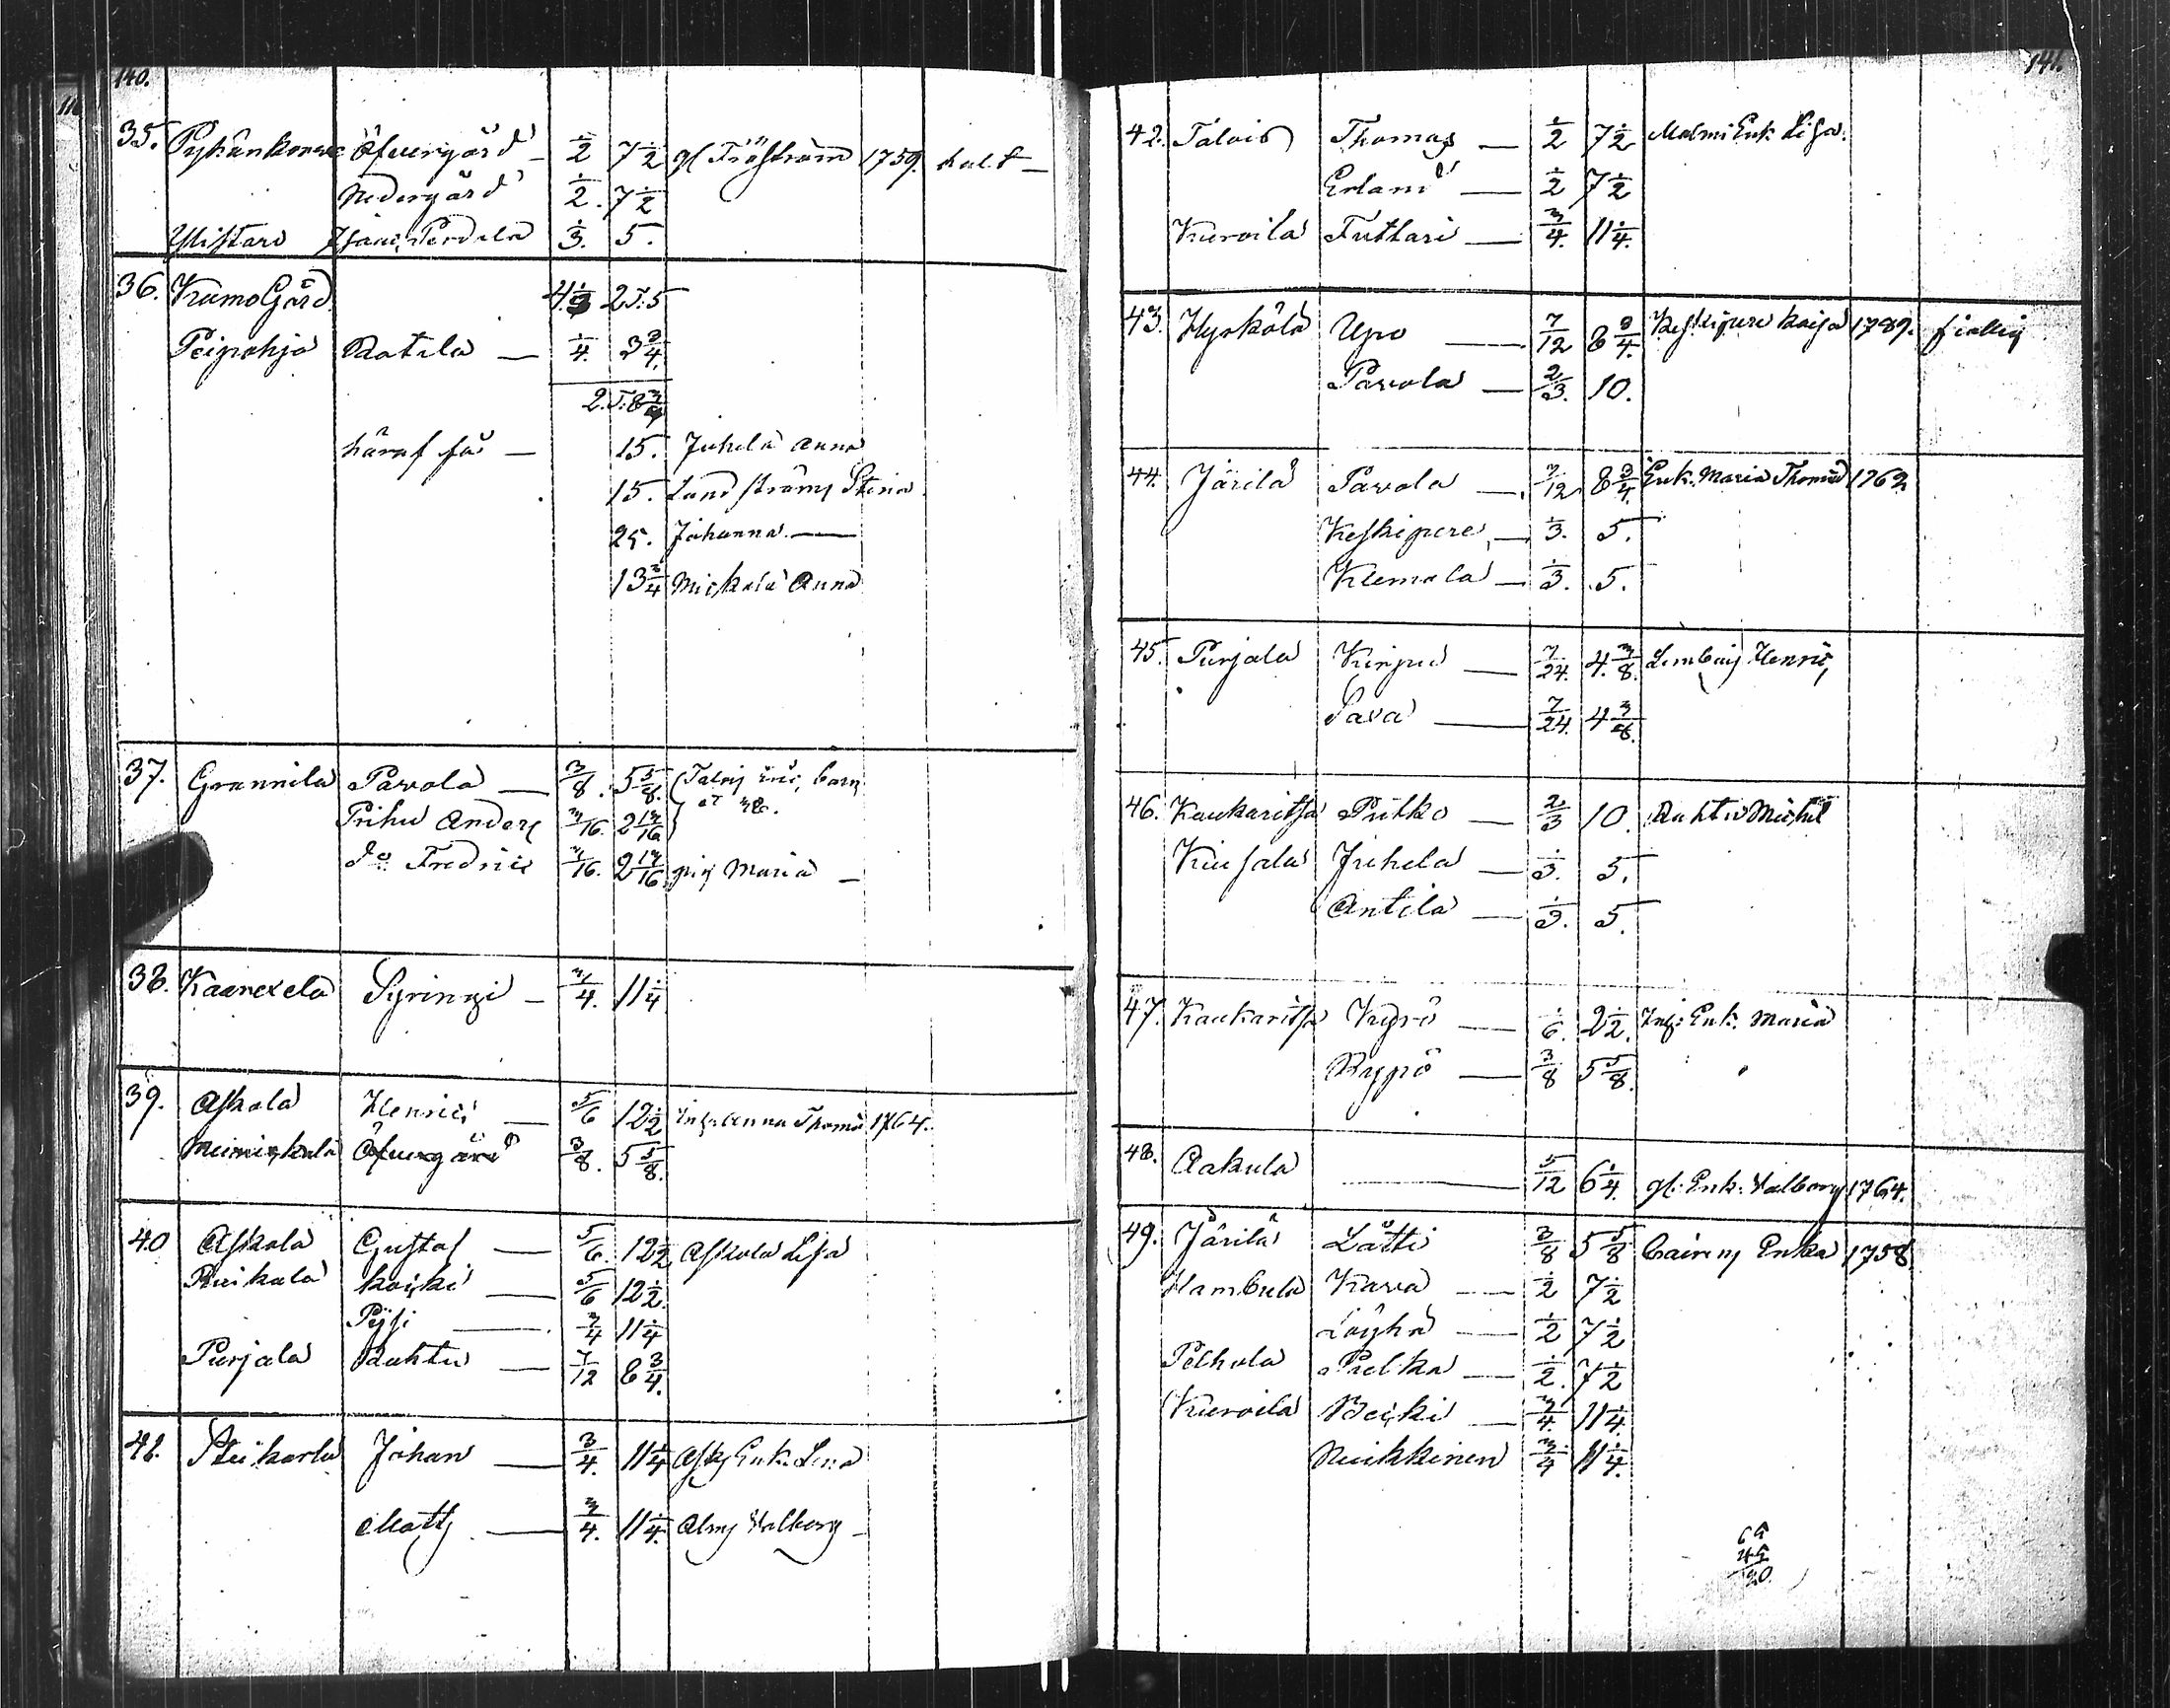 140.
35. Pyhänkorwa Öfvergård - 1/2 7 1/2 gl Fröström 1759. halt -
Nedergård 1/2. 7 1/2
Ylistaro Perdela 1/3. 5.
36. Kumo Gård 2.T.5
Peipohja Ratila — 1/4. 3 3/4.
2.T.8 3/4
häraf få — 15. Juhela Anna
15. Landströms Stina
25. Johanna —
13 3/4 Mickola Anna
37. Grannila Pavola — 3/8. 5 5/8.
Prihu Anders 3/16. 2 13/16
do Fredric 3/16. 2 13/16 pig Maria —
38. Kaarexela Syringi — 3/4. 11 1/4
39. Askola Henric — 5/6 12 1/2 Anna Thomä 1764.
Öfvergård 3/8. 5 5/8.
40 Askola Gustaf — 5/6. 12 1/2 Askola Lisa
Ruikala Koiki — 5/6 12 1/2.
Pysi — 3/4 11 1/4
Purjala Rahtu — 7/12 8 3/4.
41. Johan — 3/4. 11 1/4 Enk. Lena
Matts — 3/4. 11 1/4. Valborg —
141.
42. Talois Thomas — 1/2 7 1/2 Malmi Enk. Lisa.
Erland — 1/2 7 1/2
Kuroila Futtari — 3/4. 11 1/4.
43. Hyrkölä Upo — 7/12 8 3/4. Keskipere Kaisa 1789.
Pavola — 2/3. 10.
44. Järilä Pavola — 7/12 8 3/4. Enk. Maria Thomä 1762
Keskipere — 1/3. 5.
Klemola — 1/3. 5.
45. Purjala — 7/24. 4. 3/8. Henric
Sava — 7/24. 4 3/8.
46. Kaukaritsa Pitko — 2/3 10. Rahtu Michel
Juhela — 1/3. 5.
Antila — 1/3. 5.
47. Kaukaritsa Kyrö — 1/6. 2 1/2. Enk. Maria
Rypö — 3/8 5 5/8.
48. Aakula — 5/12 6 1/4. gl. Enk. Valborg 1764.
49. Järilä Lätti 3/8 5 5/8 Enka 1758
Hambula Karva — 1/2 7 1/2
Löyhä — 1/2 7 1/2
Pelhola — 1/2. 7 1/2
Kuroila — 3/4. 11 1/4.
Nuikkinen 3/4 11 1/4.